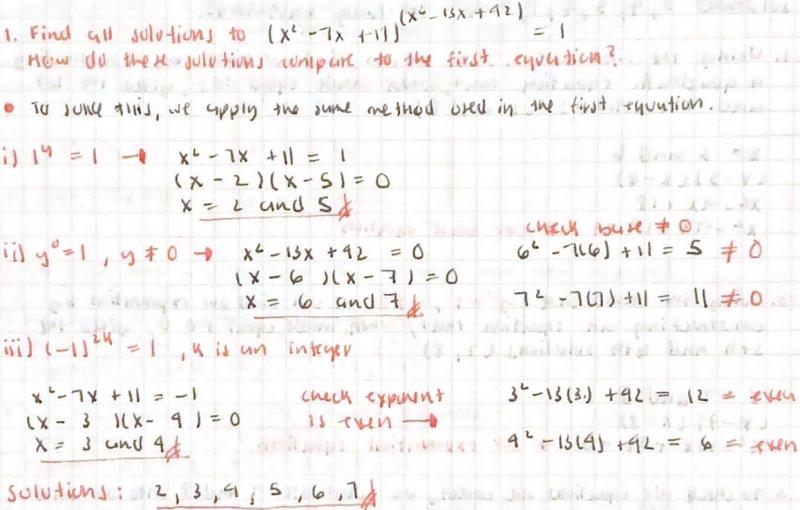 1. Find all solutions to (x² - 7x + 11)^(x² - 13x + 42) = 1
How do these solutions compare to the first equation?
• To solve this, we apply the same method used in the first equation.
i) 1^y = 1 → x² - 7x + 11 = 1
(x - 2)(x - 5) = 0
x = 2 and 5
ii) y⁰ = 1, y ≠ 0 → x² - 13x + 42 = 0
(x - 6)(x - 7) = 0
x = 6 and 7
check base ≠ 0
6² - 7(6) + 11 = 5 ≠ 0
7² - 7(7) + 11 = 11 ≠ 0
iii) (-1)^2k = 1, k is an integer
x² - 7x + 11 = -1
(x - 3)(x - 4) = 0
x = 3 and 4
check exponent
is even →
3² - 13(3) + 42 = 12 = even
4² - 13(4) + 42 = 6 = even
solutions: 2, 3, 4, 5, 6, 7